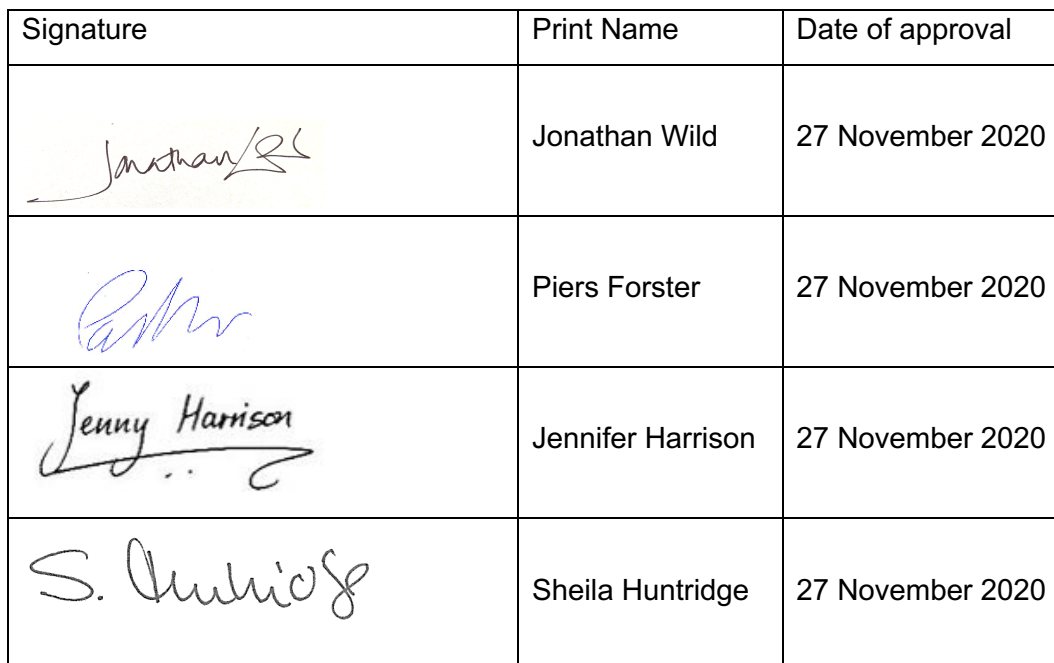 Signature Print Name Date of approval
Jonathan Jonathan Wild 27 November 2020
Piers Forster 27 November 2020
Jenny Harrison Jennifer Harrison 27 November 2020
S. Huntridge Sheila Huntridge 27 November 2020